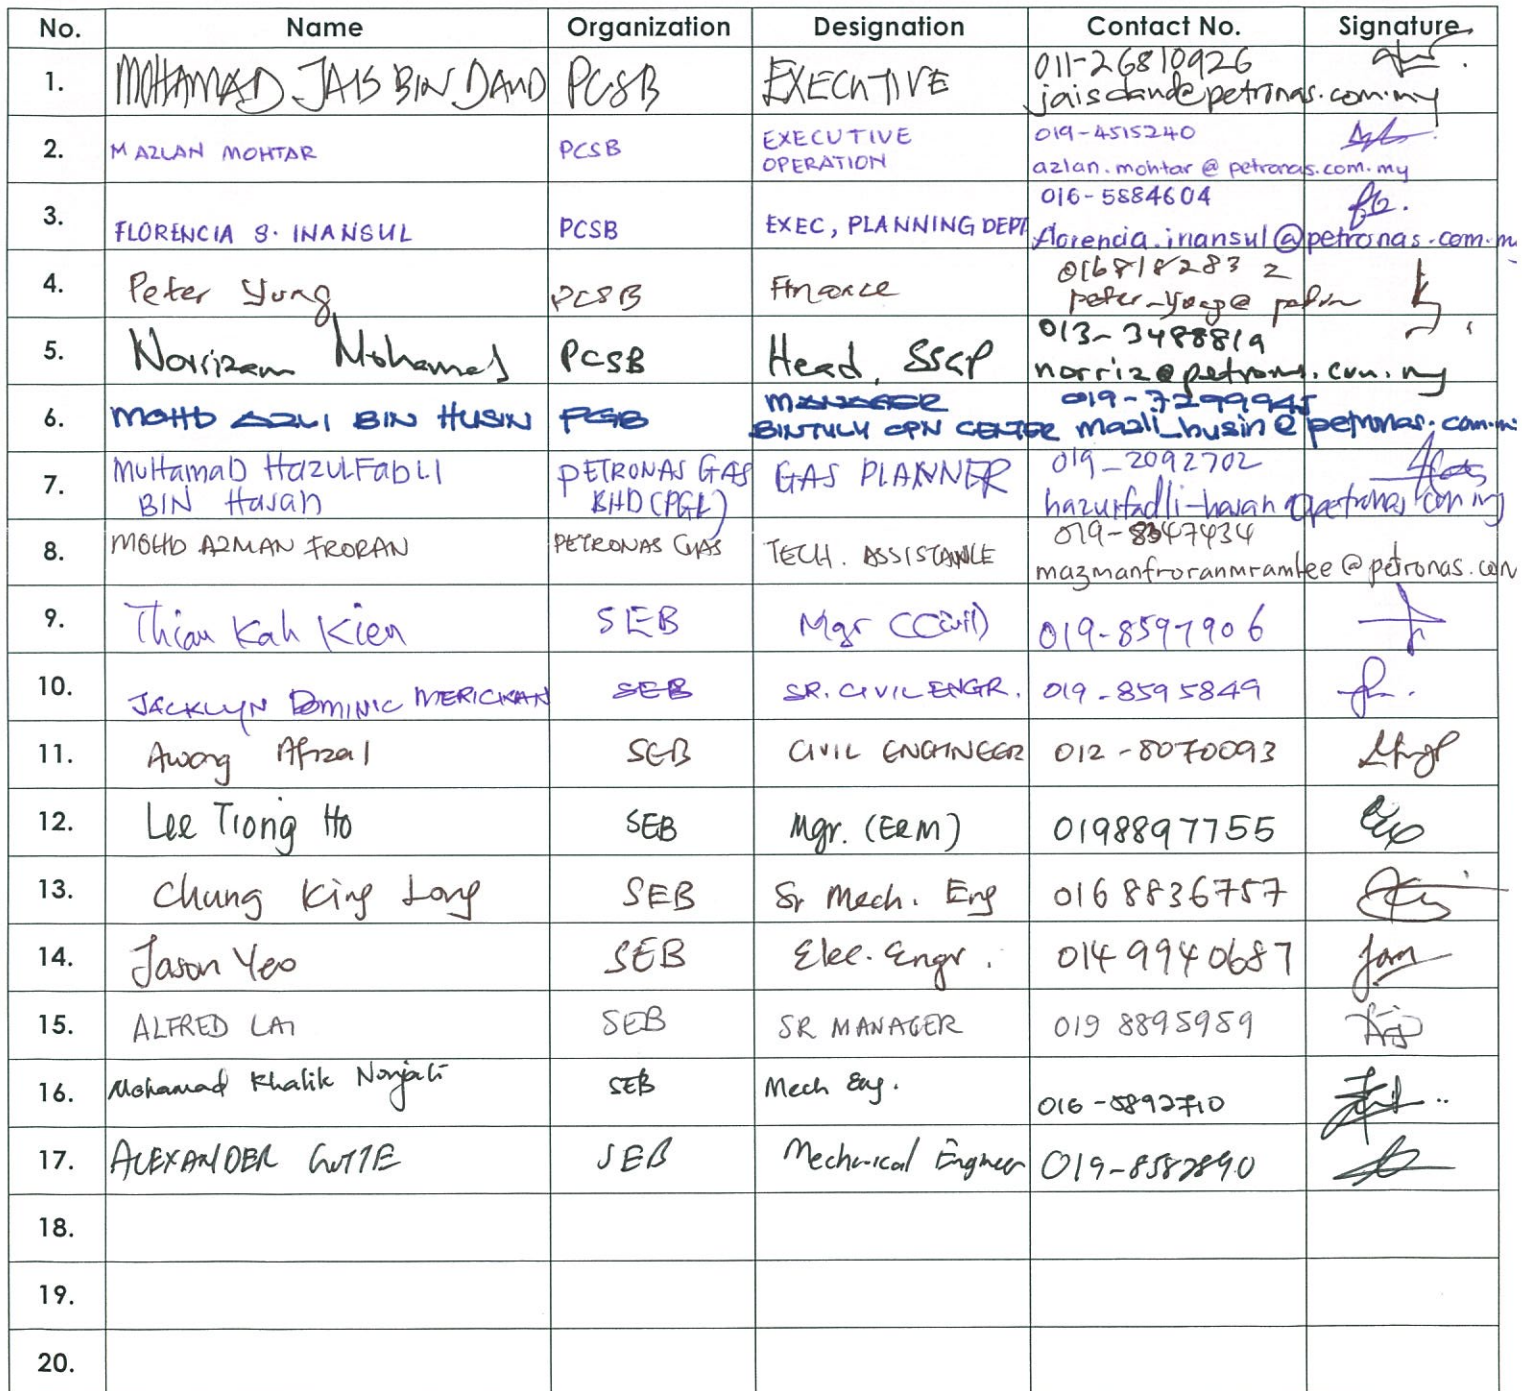 No. Name Organization Designation Contact No. Signature
1. MOHAMAD JAIS BIN DAUD PCSB EXECUTIVE 011-26810926
jaisdaud@petronas.com.my
2. MAZLAN MOHTAR PCSB EXECUTIVE OPERATION 019-4515240
azlan.mohtar@petronas.com.my
3. FLORENCIA S. INANSUL PCSB EXEC, PLANNING DEPT 016-5884604
florencia.inansul@petronas.com.m
4. Peter Yung PCSB Finance 0168182832
5. Norrizam Mohamed PCSB Head, SSGP 013-3488819
norriz@petronas.com.my
6. MOHD AZLI BIN HUSIN PGB MANAGER 019-7299945
BINTULU OPN CENTER mazli_husin@petronas.com.m
7. MUHAMAD HAZULFADLI PETRONAS GAS GAS PLANNER 019-2092702
BIN HASAN BHD (PGB)
8. MOHD AZMAN FRORAN PETRONAS GAS TECH. ASSISTANCE 019-8347434
mazmanfroranmramlee@petronas.com
9. Thian Kah Kien SEB Mgr (Civil) 019-8597906
10. JACKLYN DOMINIC MERICKAN SEB SR. CIVIL ENGR. 019-8595849
11. Awang Afizal SEB CIVIL ENGINEER 012-8070093
12. Lee Tiong Ho SEB Mgr. (E&M) 0198897755
13. Chung King Long SEB Sr Mech. Eng 0168836757
14. Jason Yeo SEB Elec. Engr. 0149940687
15. ALFRED LAI SEB SR MANAGER 019 8895959
16. Mohamad Khalik Norjali SEB Mech Eng. 016-8892710
17. ALEXANDER SEB Mechanical Engineer 019-8582890
18.
19.
20.